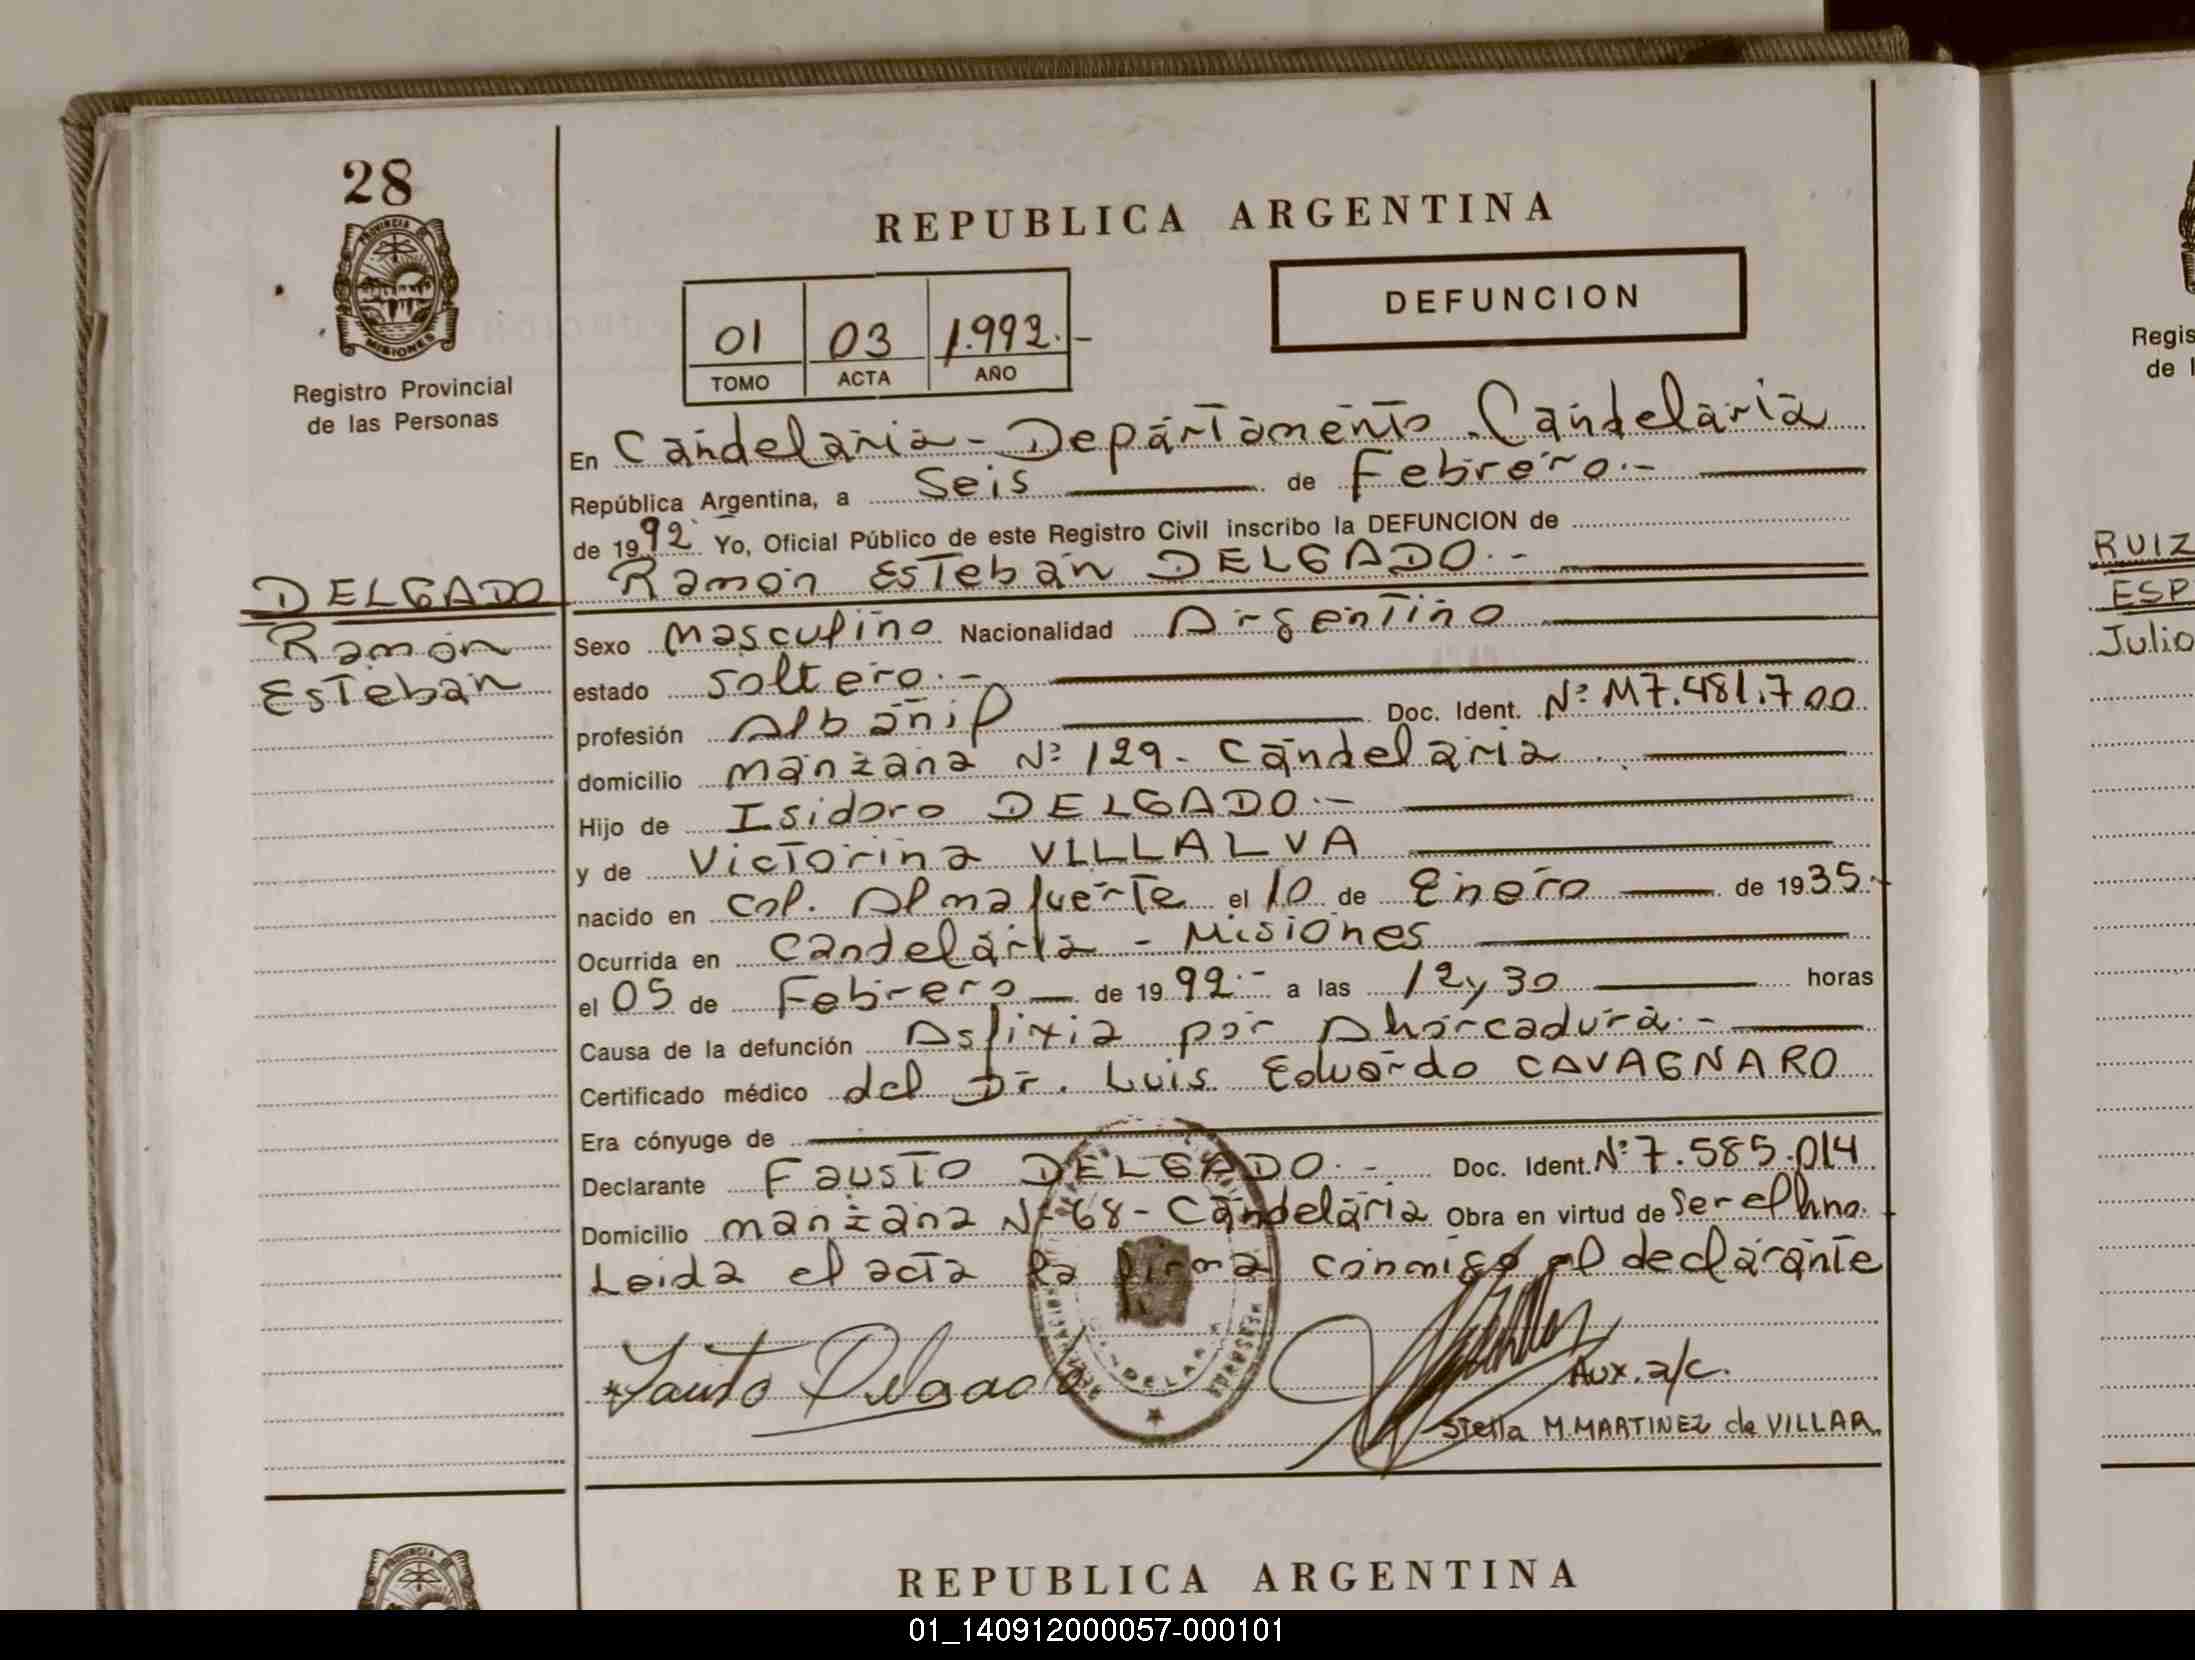 28
PROVINCIA DE
MISIONES
Registro Provincial
de las Personas
REPUBLICA ARGENTINA
01 03 1.992.-
TOMO ACTA AÑO
DEFUNCION
En Candelaria - Departamento - Candelaria
República Argentina, a Seis de Febrero.-
de 1992 Yo, Oficial Público de este Registro Civil inscribo la DEFUNCION de
DELGADO Ramón Esteban DELGADO.-
Ramón
Esteban
Sexo masculino Nacionalidad Argentino
estado soltero.-
profesión Albañil Doc. Ident. Nº M7.481.700
domicilio manzana Nº 129 - Candelaria
Hijo de Isidoro DELGADO.-
y de Victorina VILLALVA
nacido en Col. Almafuerte el 10 de Enero de 1935.-
Ocurrida en Candelaria - Misiones
el 05 de Febrero de 1992.- a las 12 y 30 horas
Causa de la defunción Asfixia por Ahorcadura.-
Certificado médico del Dr. Luis Eduardo CAVAGNARO
Era cónyuge de
Declarante Fausto DELGADO.- Doc. Ident. Nº 7.585.014
Domicilio manzana Nº 68 - Candelaria Obra en virtud de ser el hno.
Leida el acta la firma conmigo el declarante
Fausto Delgado
Aux. a/c.
Stella M. MARTINEZ de VILLAR
REPUBLICA ARGENTINA
PROVINCIA
Regis
de l
RUIZ
ESP
Julio
01_140912000057-000101